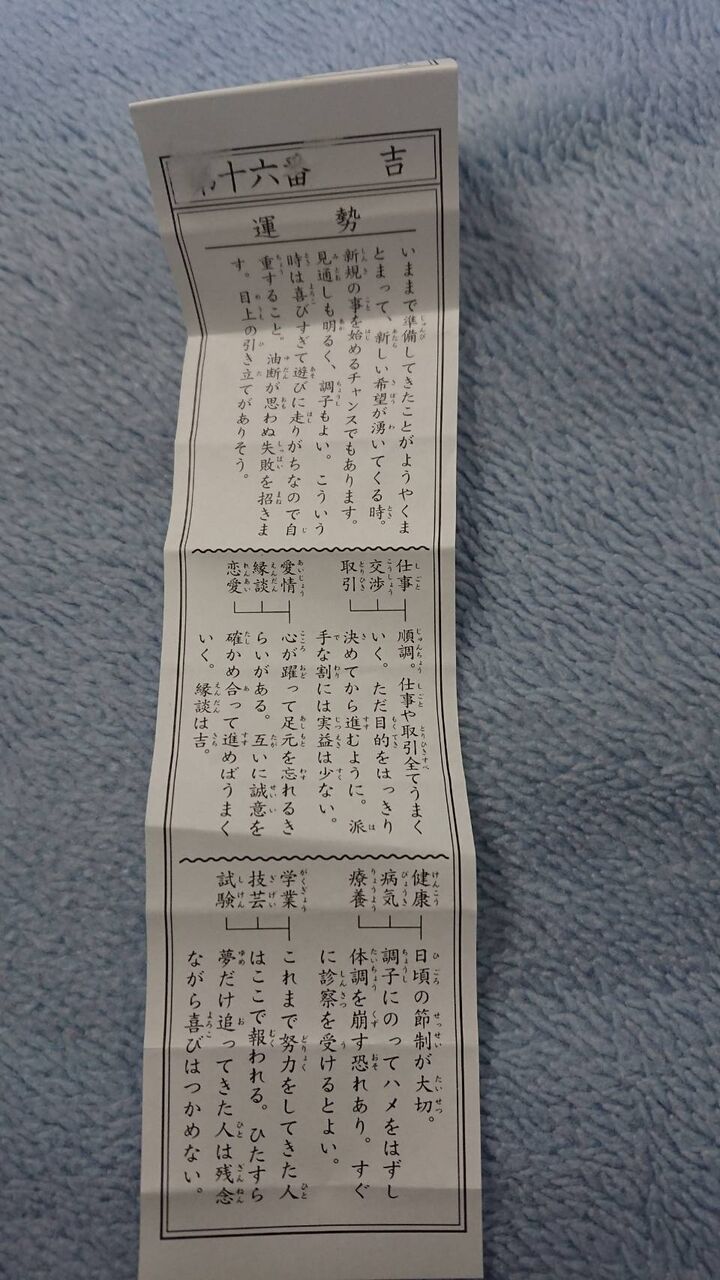 第十六番 吉
運勢
いままで準備してきたことがようやくま
とまって、新しい希望が湧いてくる時。
新規の事を始めるチャンスでもあります。
見通しも明るく、調子もよい。こういう
時は喜びすぎて遊びに走りがちなので自
重すること。油断が思わぬ失敗を招きま
す。目上の引き立てがありそう。
仕事
交渉
取引
順調。仕事や取引全てうまく
いく。ただ目的をはっきり
決めてから進むように。派
手な割には実益は少ない。
愛情
縁談
恋愛
心が躍って足元を忘れるき
らいがある。互いに誠意を
確かめ合って進めばうまく
いく。縁談は吉。
健康
病気
療養
日頃の節制が大切。
調子にのってハメをはずし
体調を崩す恐れあり。すぐ
に診察を受けるとよい。
学業
技芸
試験
これまで努力をしてきた人
はここで報われる。ひたすら
夢だけ追ってきた人は残念
ながら喜びはつかめない。